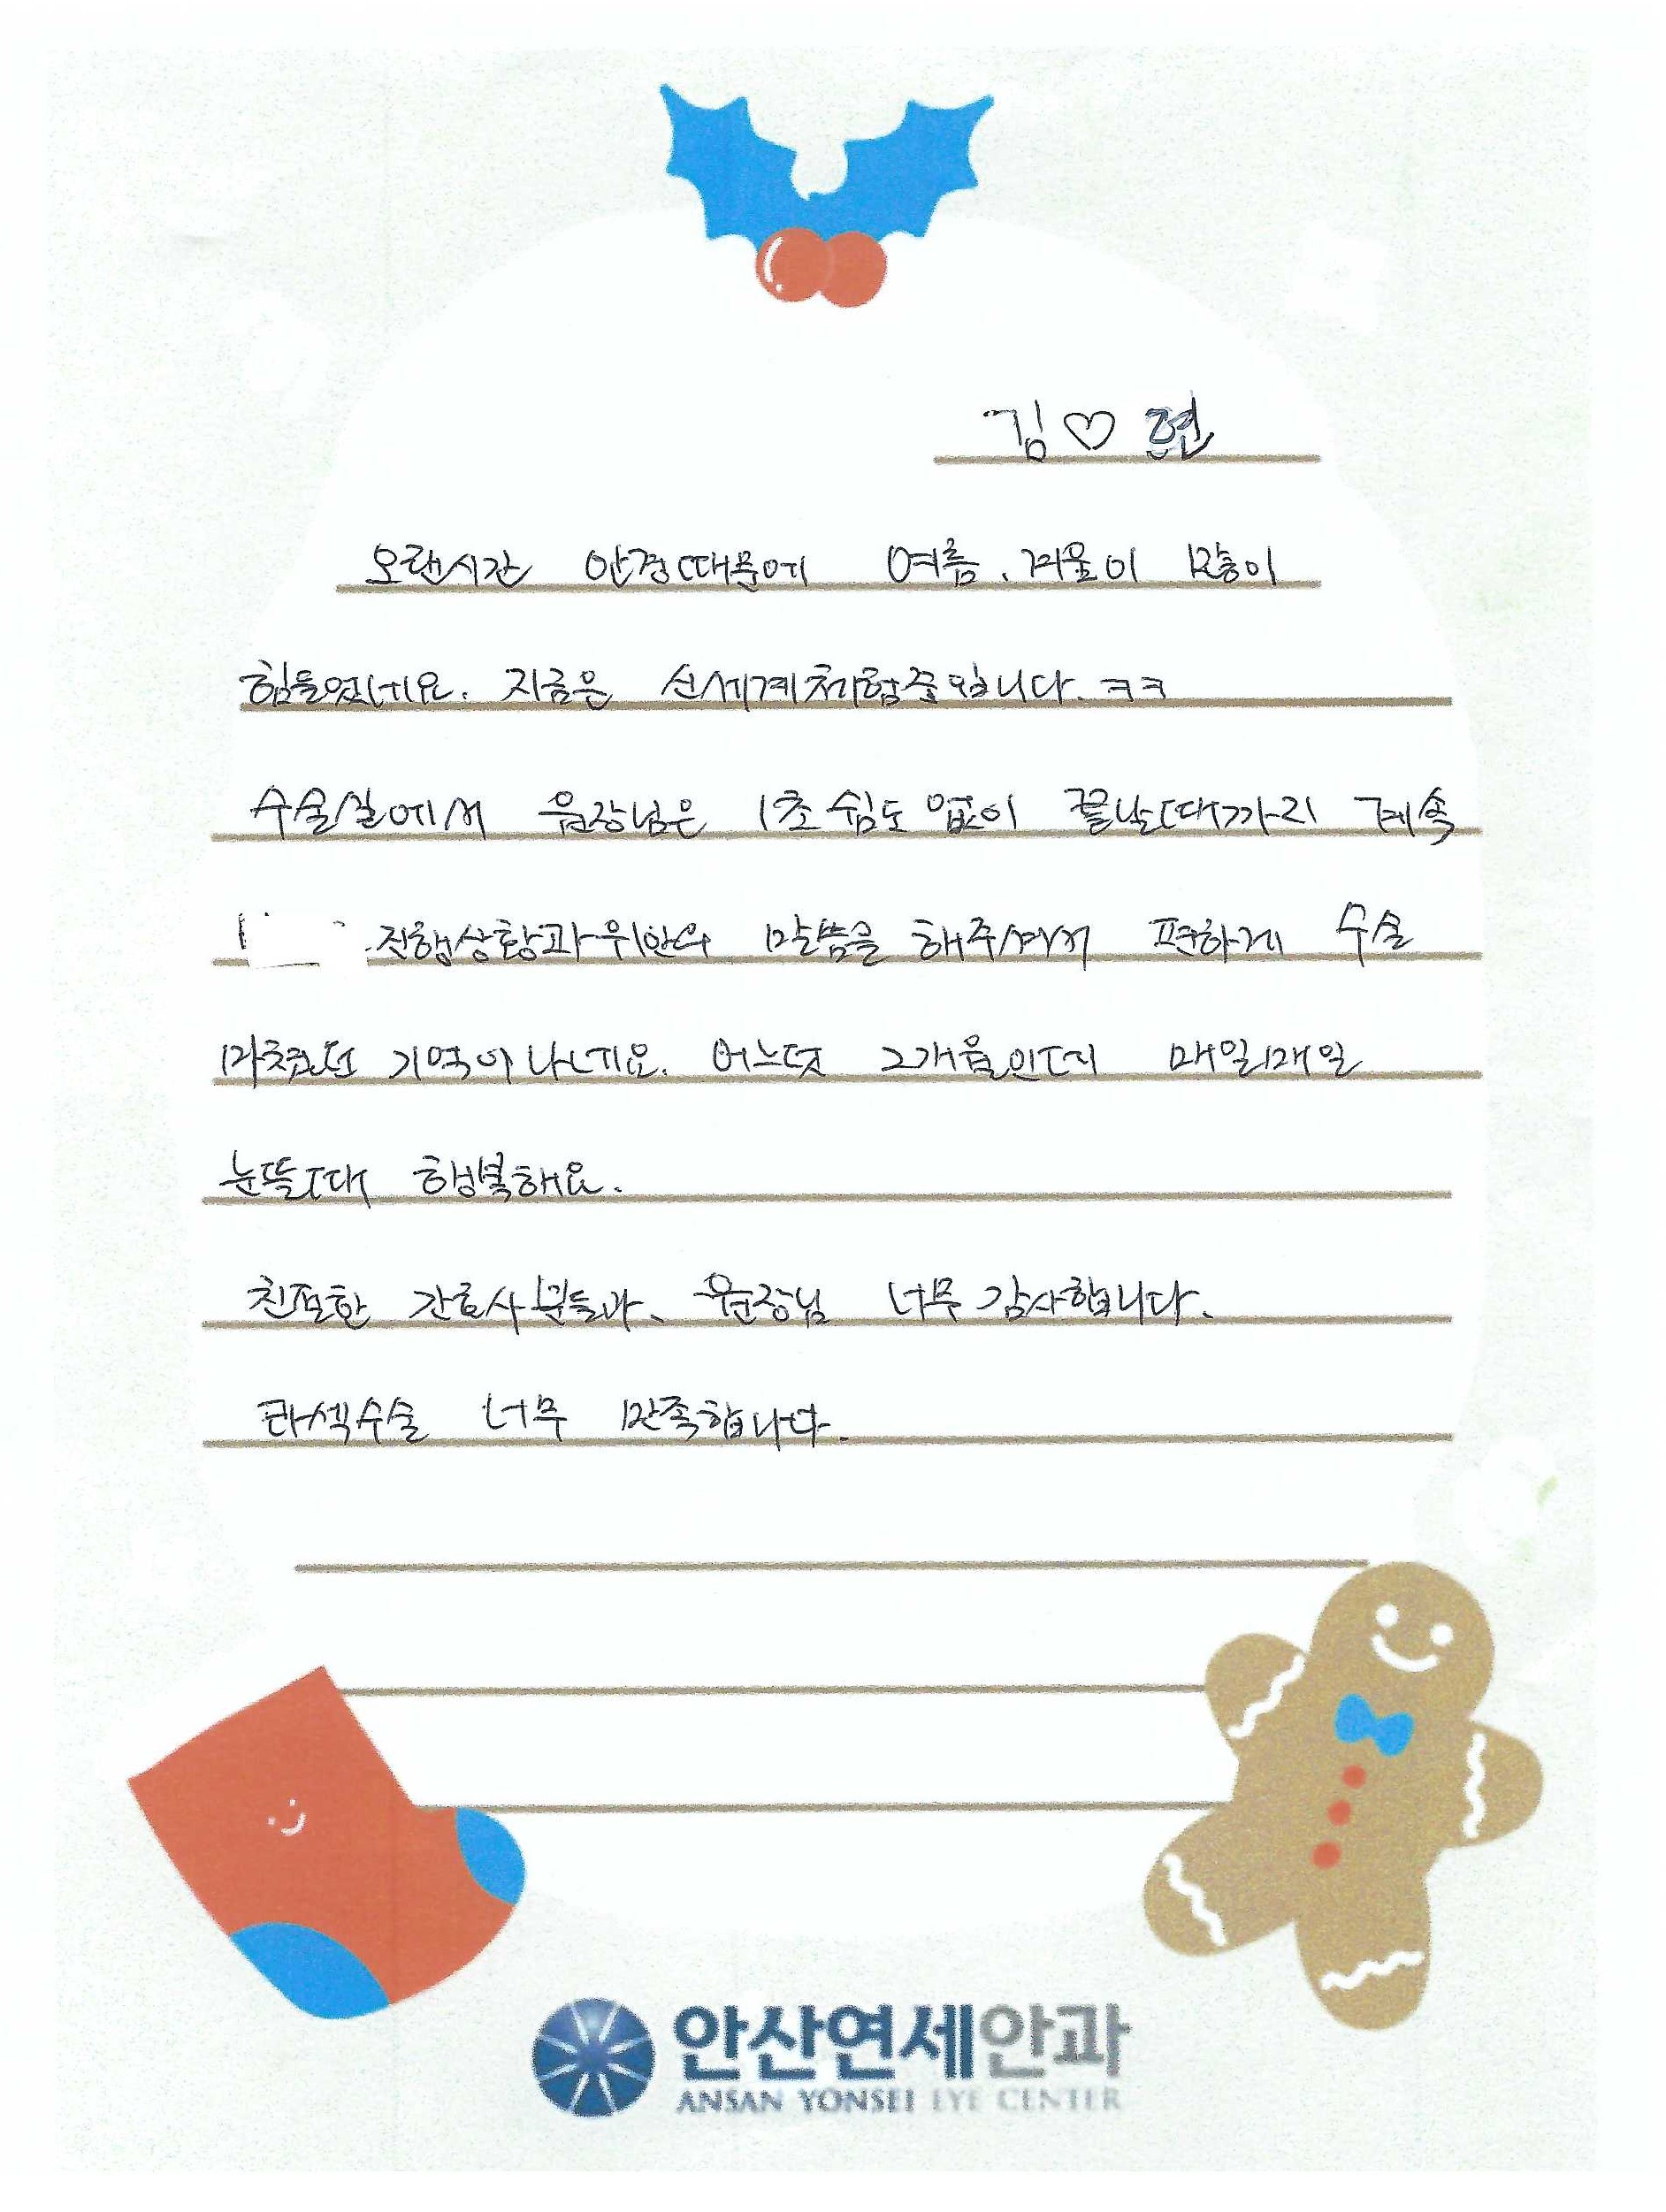 김♡련
오랜시간 안경때문에 여름, 겨울이 많이
힘들었네요. 지금은 신세계체험중입니다. ㅋㅋ
수술실에서 원장님은 1초 쉼도 없이 끝날때까지 계속
진행상황과 위안의 말씀을 해주셔서 편하게 수술
마쳤던 기억이 나네요. 어느덧 2개월인데 매일매일
눈뜰때 행복해요.
친절한 간호사분들과, 원장님 너무 감사합니다.
라섹수술 너무 만족합니다.
안산연세안과
ANSAN YONSEI EYE CENTER